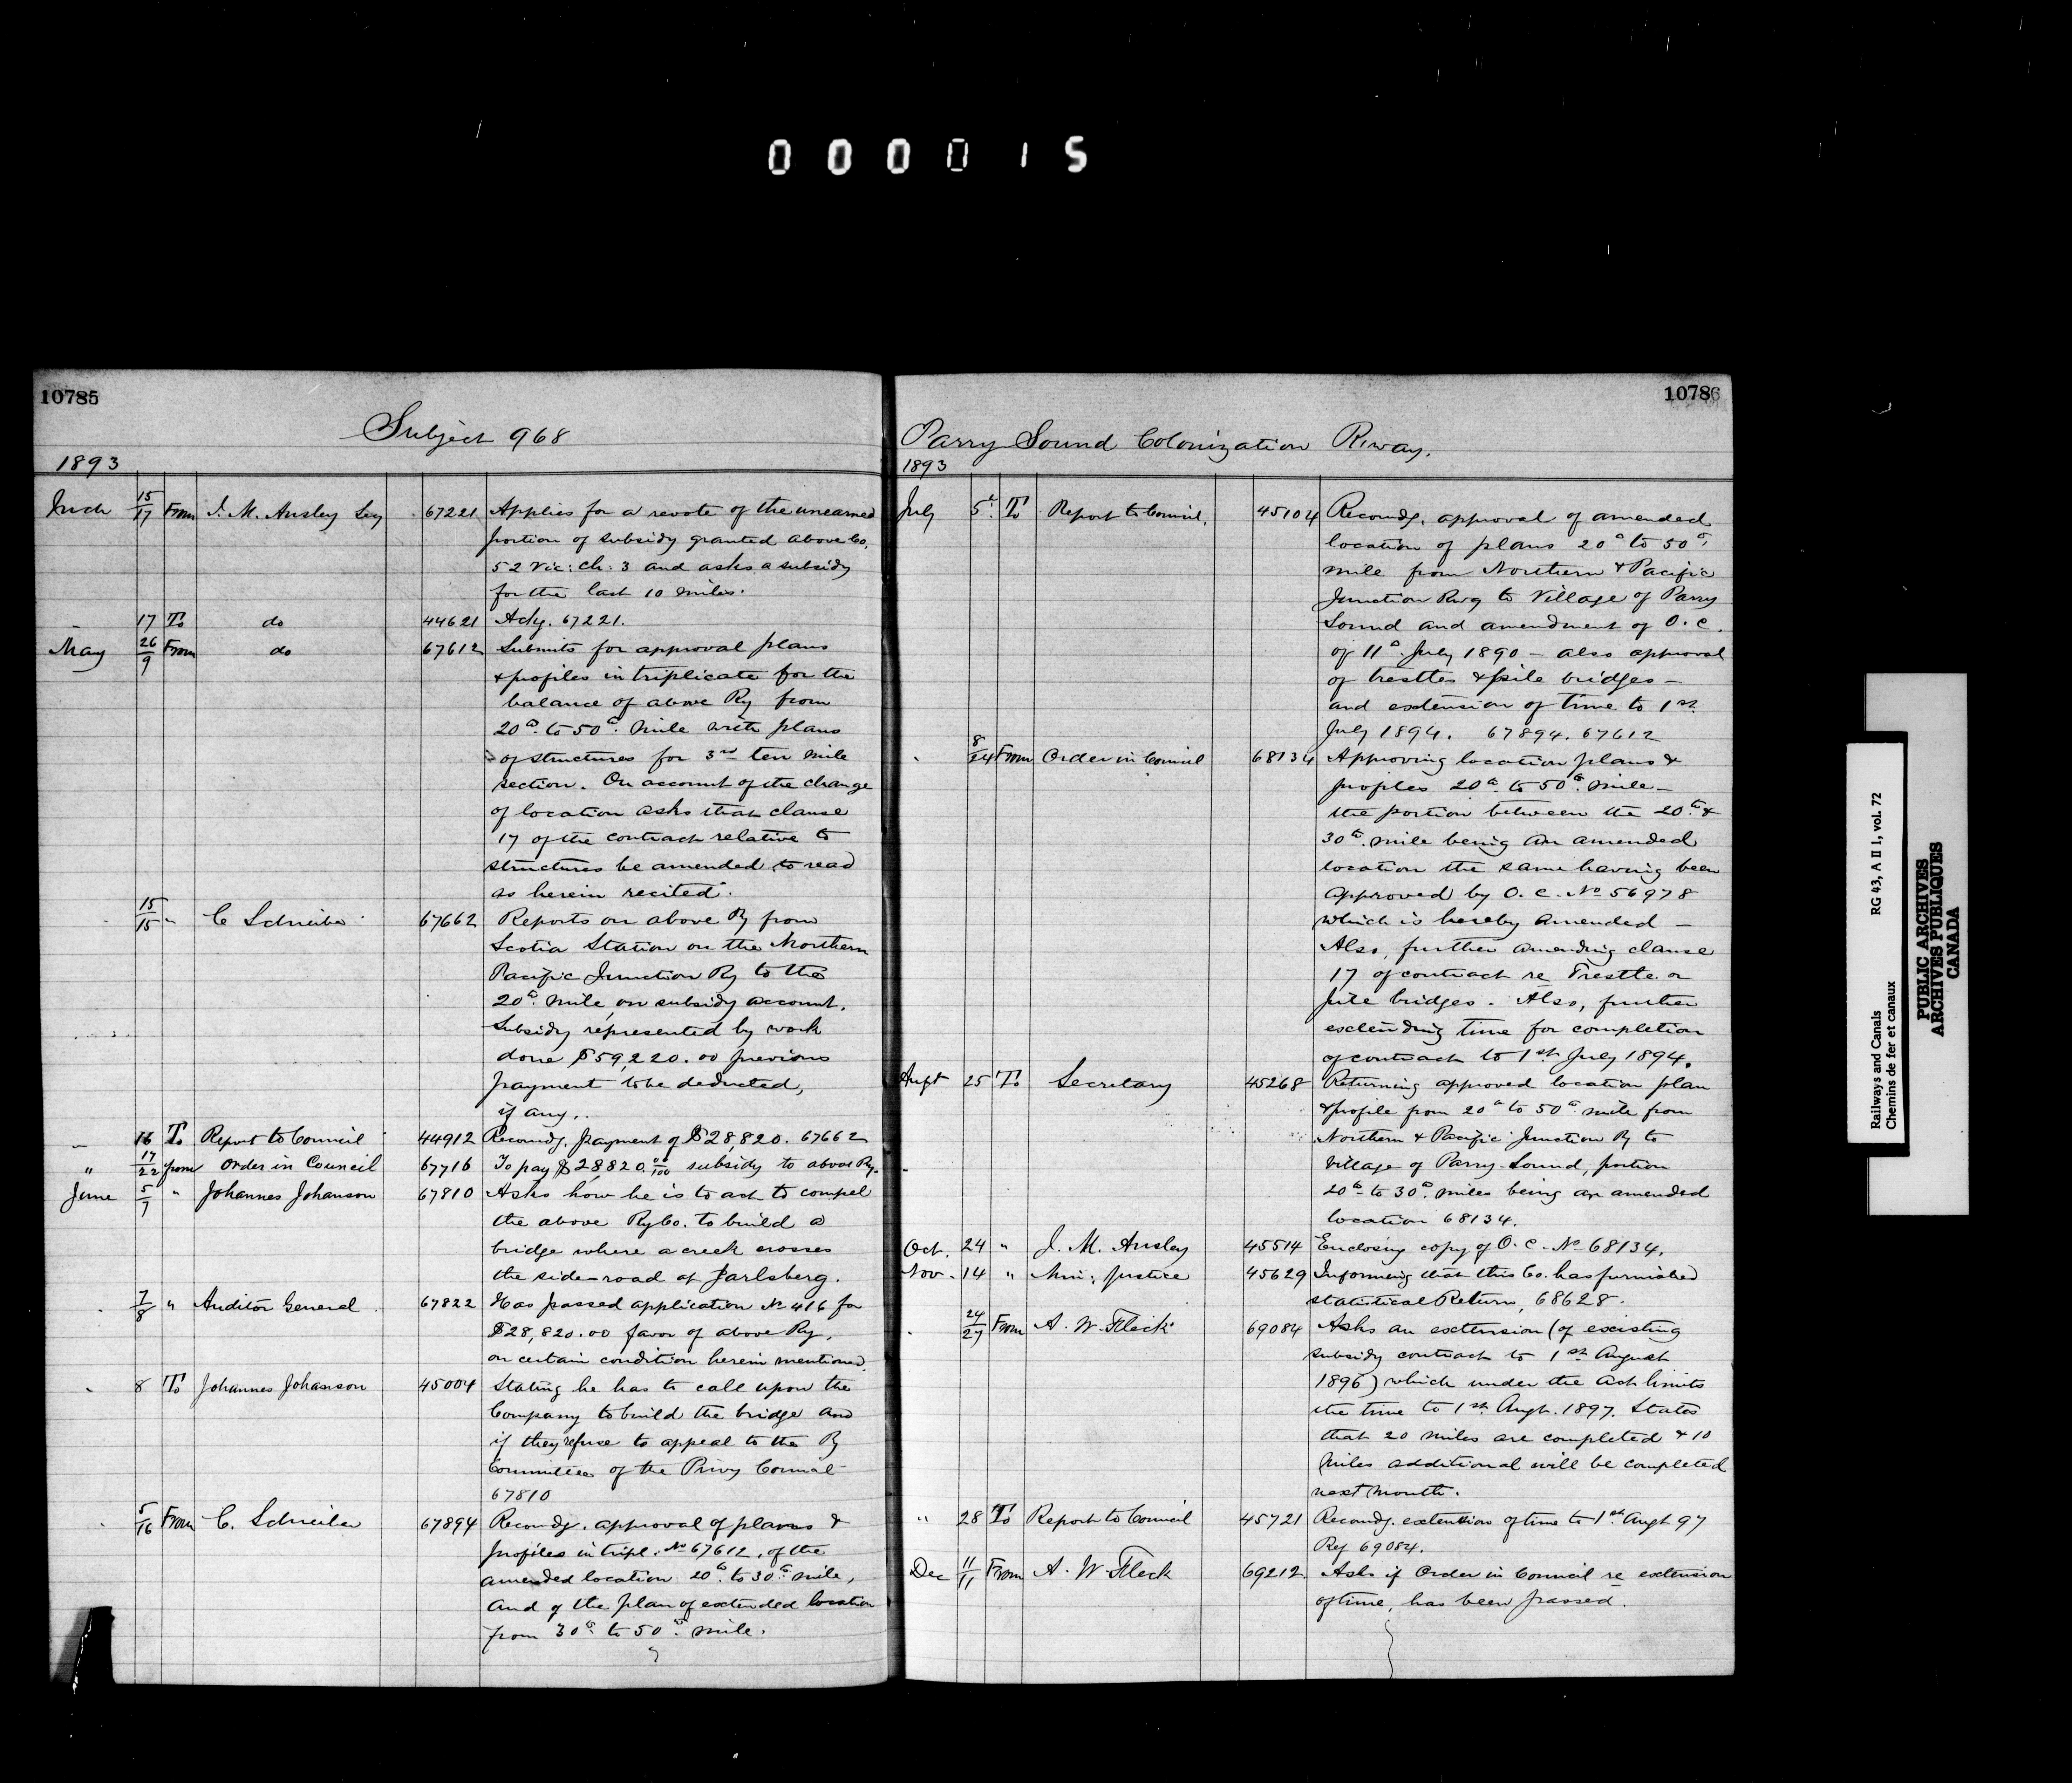 000015
10785
Subject 968
1893
Mch 15/17 From J. M. Ansley Secy 67221 Applies for a revote of the unearned
portion of subsidy granted above Co.
52 Vic: Ch: 3 and asks a subsidy
for the last 10 miles.
" 17 To do 44621 Ackg. 67221.
May 26/9 From do 67612 Submits for approval plans
& profiles in triplicate for the
balance of above Ry from
20th to 50th mile with plans
of structures for 3rd ten mile
section. On account of the change
of location asks that clause
17 of the contract relative to
structures be amended to read
as herein recited.
" 15/15 " C Schreiber 67662 Reports on above Ry from
Scotia Station on the Northern
Pacific Junction Ry to the
20th mile, on subsidy account.
Subsidy represented by work
done $59,220.00 previous
payment to be deducted,
if any.
" 16 To Report to Council 44912 Recomdg. payment of $28,820. 67662
" 17/22 from Order in Council 67716 To pay $28820 00/100 subsidy to above Ry.
June 5/7 " Johannes Johanson 67810 Asks how he is to act to compel
the above Ry Co. to build a
bridge where a creek crosses
the side-road at Jarlsberg.
" 7/8 " Auditor General 67822 Has passed application No 416 for
$28,820.00 favor of above Ry,
on certain condition herein mentioned.
" 8 To Johannes Johanson 45004 Stating he has to call upon the
Company to build the bridge and
if they refuse to appeal to the Ry
Committee of the Privy Council
67810
" 5/16 From C. Schreiber 67894 Recomdg. approval of plans &
profiles in tripl. No 67612, of the
amended location 20th to 30th mile,
and of the plan of extended location
from 30th to 50th mile.
10786
Parry Sound Colonization R'way.
1893
July 5th To Report to Council, 45104 Recomdg. approval of amended
location of plans 20th to 50th
mile from Northern & Pacific
Junction Rwy to Village of Parry
Sound and amendment of O.C.
of 11th July 1890 - also approval
of trestles & pile bridges -
and extension of time to 1st
July 1894. 67894. 67612
" 8/24 From Order in Council 68134 Approving location plans &
profiles 20th to 50th mile -
the portion between the 20th &
30th mile being an amended
location the same having been
approved by O.C. No 56978
which is hereby amended -
Also, further amending clause
17 of contract re Trestle or
pile bridges. Also, further
extending time for completion
of contract to 1st July 1894.
Augt 25 To Secretary 45268 Returning approved location plan
& profile from 20th to 50th mile from
Northern & Pacific Junction Ry to
Village of Parry Sound, portion
20th to 30th miles being an amended
location 68134.
Oct. 24 " J. M. Ansley 45514 Enclosing copy of O.C. No 68134.
Nov. 14 " Min: Justice 45629 Informing that this Co. has furnished
statistical Return, 68628.
" 24/27 From A. W. Fleck 69084 Asks an extension (of existing
subsidy contract to 1st August
1896) which under the Act limits
the time to 1st Augt. 1897. States
that 20 miles are completed & 10
miles additional will be completed
next month.
" 28 To Report to Council 45721 Recomdg. extention of time to 1st Augt 97
Ref 69084.
Dec 11/11 From A. W. Fleck 69212 Asks if Order in Council re extension
of time, has been passed.
Railways and Canals RG 43, A II 1, vol. 72
Chemins de fer et canaux
PUBLIC ARCHIVES
ARCHIVES PUBLIQUES
CANADA